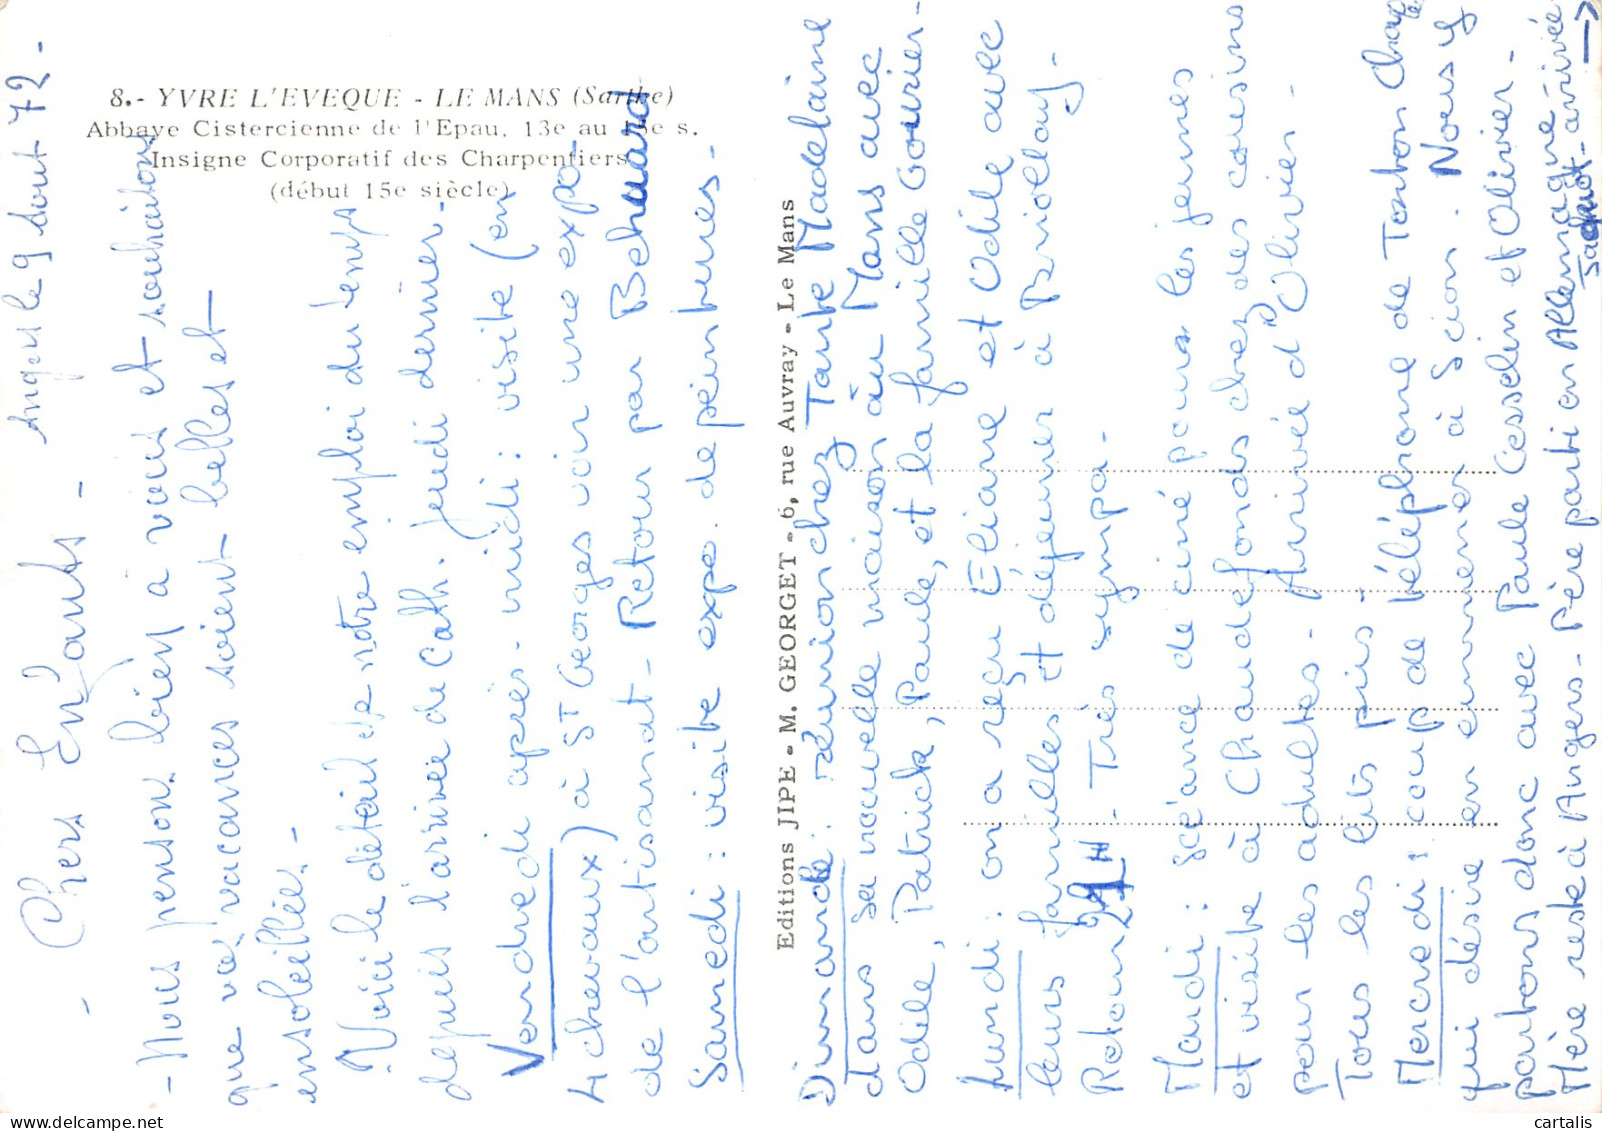 8.- YVRE L'EVEQUE - LE MANS (Sarthe)
Abbaye Cistercienne de l'Epau, 13e au 15e s.
Insigne Corporatif des Charpentiers
(début 15e siècle)
Editions JIPE - M. GEORGET - 6, rue Auvray - Le Mans
Angers le 9 août 72 -
- Chers Enfants -
- Nous pensons bien à vous et souhaitons
que vos vacances soient belles et
ensoleillées. -
Voici le détail de notre emploi du temps
depuis l'arrivée de Cath. jeudi dernier.
Vendredi après-midi : visite (en
4 chevaux) à St Georges voir une expo-
de l'artisanat - Retour par Behuard
Samedi : visite expo. de peintures. -
Dimanche : réunion chez Tante Madelaine
dans sa nouvelle maison au Mans avec
Odile, Patrick, Paule, et la famille Gourier -
Lundi : on a reçu Eliane et Odile avec
leurs familles et déjeuner à Briollay -
Retour 21H - Très sympa -
Mardi : séance de ciné pour les jeunes
et visite à Chaudefonds chez des cousins
pour les adultes. Arrivée d'Olivier -
Tous les lits pris -
Mercredi : coup de téléphone de Tonton Charles
qui désire en emmener à Scion. Nous y
partons donc avec Paule Cesselin et Olivier -
Mère reste à Angers - Père parti en Allemagne -
Jacquot - arrivée →
cartalis